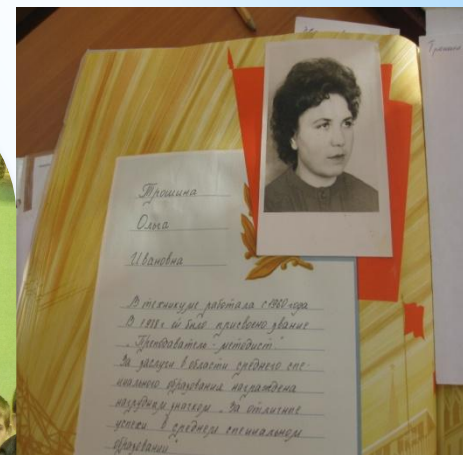 Трошина
Ольга
Ивановна
В техникуме работала с 1960 года
В 1978 г. ей было присвоено звание
„Преподаватель - методист"
За заслуги в области среднего спе-
циального образования награждена
нагрудным значком „За отличные
успехи в среднем специальном
образовании